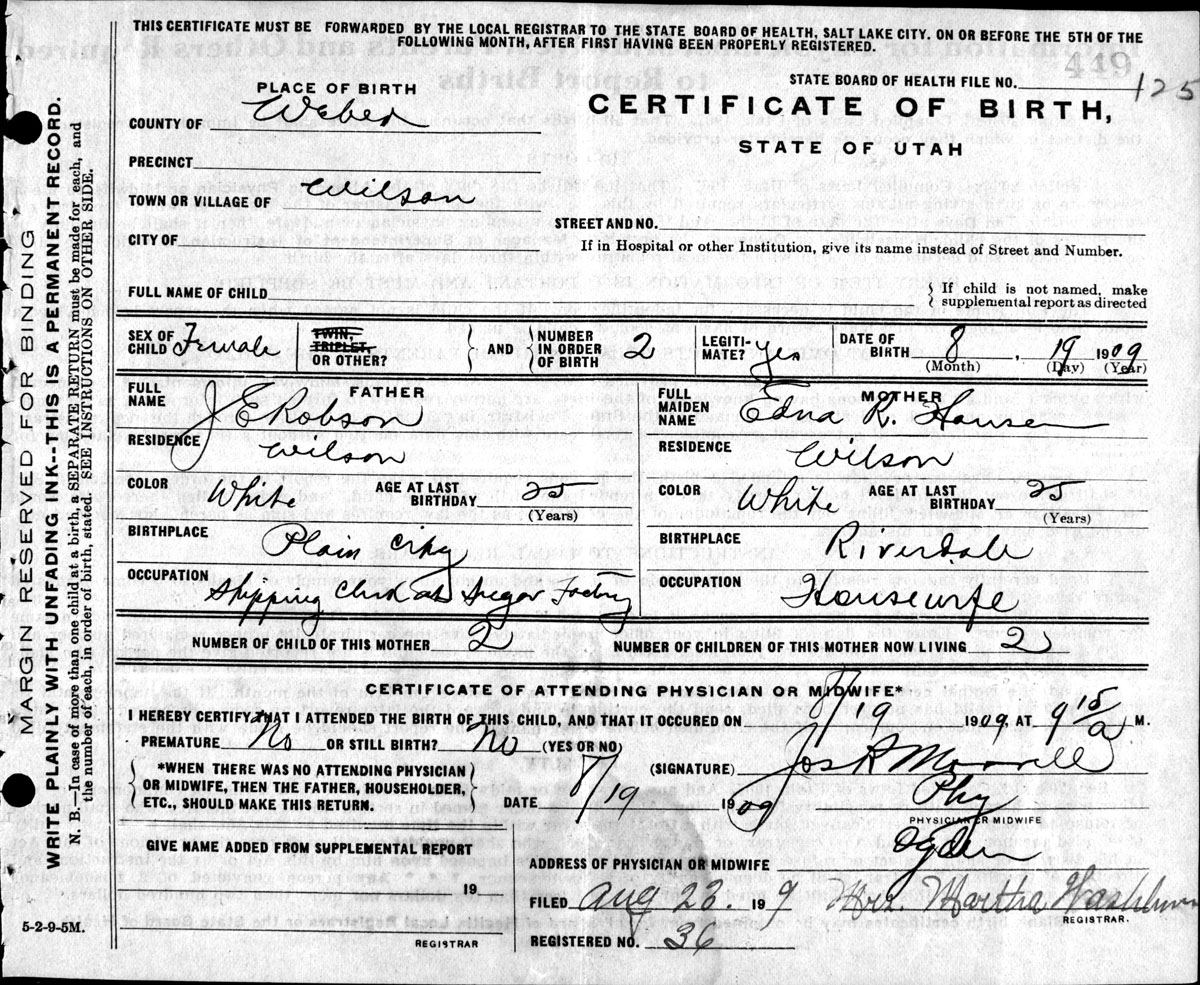 THIS CERTIFICATE MUST BE FORWARDED BY THE LOCAL REGISTRAR TO THE STATE BOARD OF HEALTH, SALT LAKE CITY, ON OR BEFORE THE 5TH OF THE
FOLLOWING MONTH, AFTER FIRST HAVING BEEN PROPERLY REGISTERED.
449
STATE BOARD OF HEALTH FILE NO. 125
PLACE OF BIRTH
CERTIFICATE OF BIRTH,
COUNTY OF Weber
STATE OF UTAH
PRECINCT
TOWN OR VILLAGE OF Wilson
STREET AND NO.
CITY OF
If in Hospital or other Institution, give its name instead of Street and Number.
FULL NAME OF CHILD
If child is not named, make
supplemental report as directed
SEX OF CHILD Female TWIN, TRIPLET, OR OTHER? AND NUMBER IN ORDER OF BIRTH 2 LEGITI-MATE? yes DATE OF BIRTH 8, 19 1909
(Month) (Day) (Year)
FATHER
FULL NAME J E Robson
RESIDENCE Wilson
COLOR White AGE AT LAST BIRTHDAY 25 (Years)
BIRTHPLACE Plain City
OCCUPATION Shipping Clerk at Sugar Factory
MOTHER
FULL MAIDEN NAME Edna R. Hansen
RESIDENCE Wilson
COLOR White AGE AT LAST BIRTHDAY 25 (Years)
BIRTHPLACE Riverdale
OCCUPATION Housewife
NUMBER OF CHILD OF THIS MOTHER 2 NUMBER OF CHILDREN OF THIS MOTHER NOW LIVING 2
CERTIFICATE OF ATTENDING PHYSICIAN OR MIDWIFE*
I HEREBY CERTIFY THAT I ATTENDED THE BIRTH OF THIS CHILD, AND THAT IT OCCURED ON 8/19 1909, AT 9 15 a M.
PREMATURE No OR STILL BIRTH? No (YES OR NO)
*WHEN THERE WAS NO ATTENDING PHYSICIAN
OR MIDWIFE, THEN THE FATHER, HOUSEHOLDER,
ETC., SHOULD MAKE THIS RETURN.
(SIGNATURE) Jos R Morrell
DATE 8/19 1909
Phy
PHYSICIAN OR MIDWIFE
GIVE NAME ADDED FROM SUPPLEMENTAL REPORT
19
REGISTRAR
ADDRESS OF PHYSICIAN OR MIDWIFE Ogden
FILED Aug 23. 19 9 Mrs. Martha Washburn
REGISTRAR.
REGISTERED NO. 36
5-2-9-5M.
MARGIN RESERVED FOR BINDING
WRITE PLAINLY WITH UNFADING INK--THIS IS A PERMANENT RECORD.
N. B.—In case of more than one child at a birth, a SEPARATE RETURN must be made for each, and
the number of each, in order of birth, stated. SEE INSTRUCTIONS ON OTHER SIDE.